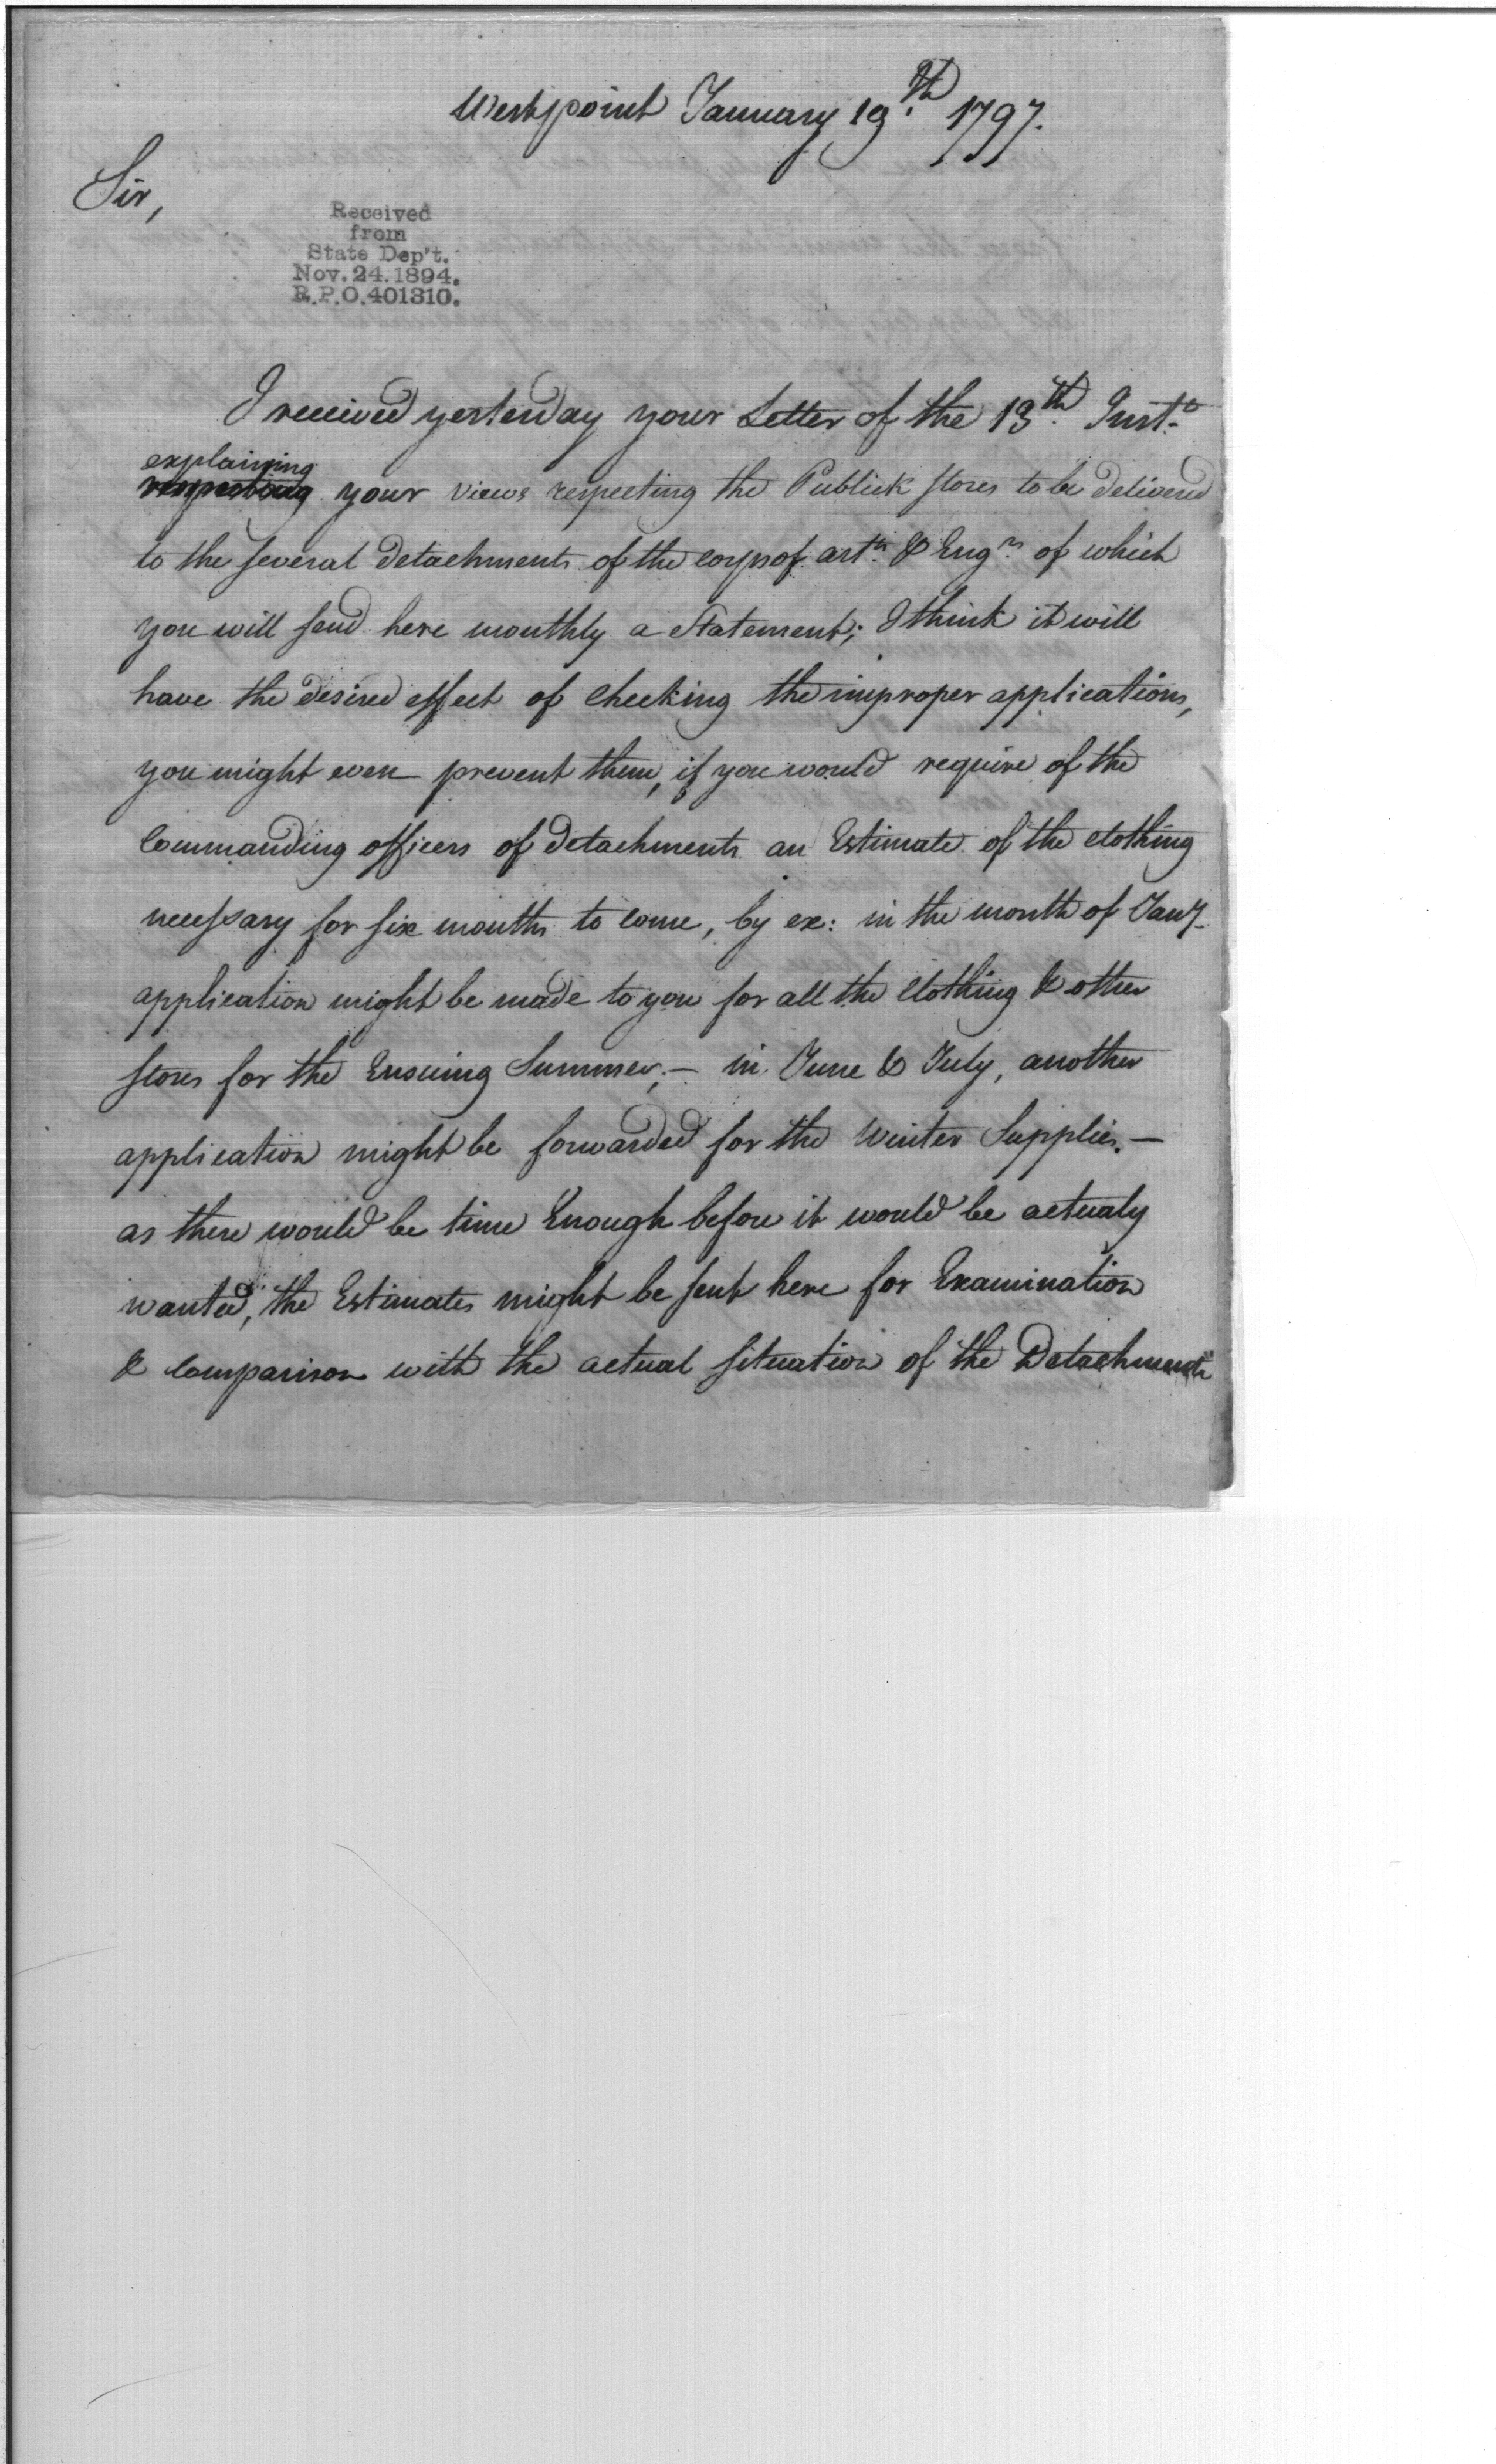 Westpoint January 19.th 1797.
Sir,
Received
from
State Dep't.
Nov. 24. 1894.
R.P.O. 401310.
I received yesterday your Letter of the 13th. Inst.t
explaining
respecting your views respecting the Publick stores to be delivered
to the several detachments of the corps of art.rs & Eng.rs of which
you will send here monthly a Statement; I think it will
have the desired effect of checking the improper applications,
you might even prevent them, if you would require of the
Commanding officers of detachments an Estimate of the clothing
necessary for six months to come, by ex: in the month of Jany.
application might be made to you for all the clothing & other
stores for the Ensuing Summer; — in June & July, another
application might be forwarded for the winter Supplies. —
as there would be time Enough before it would be actualy
wanted, the Estimates might be sent here for Examination
& comparison with the actual situation of the Detachments